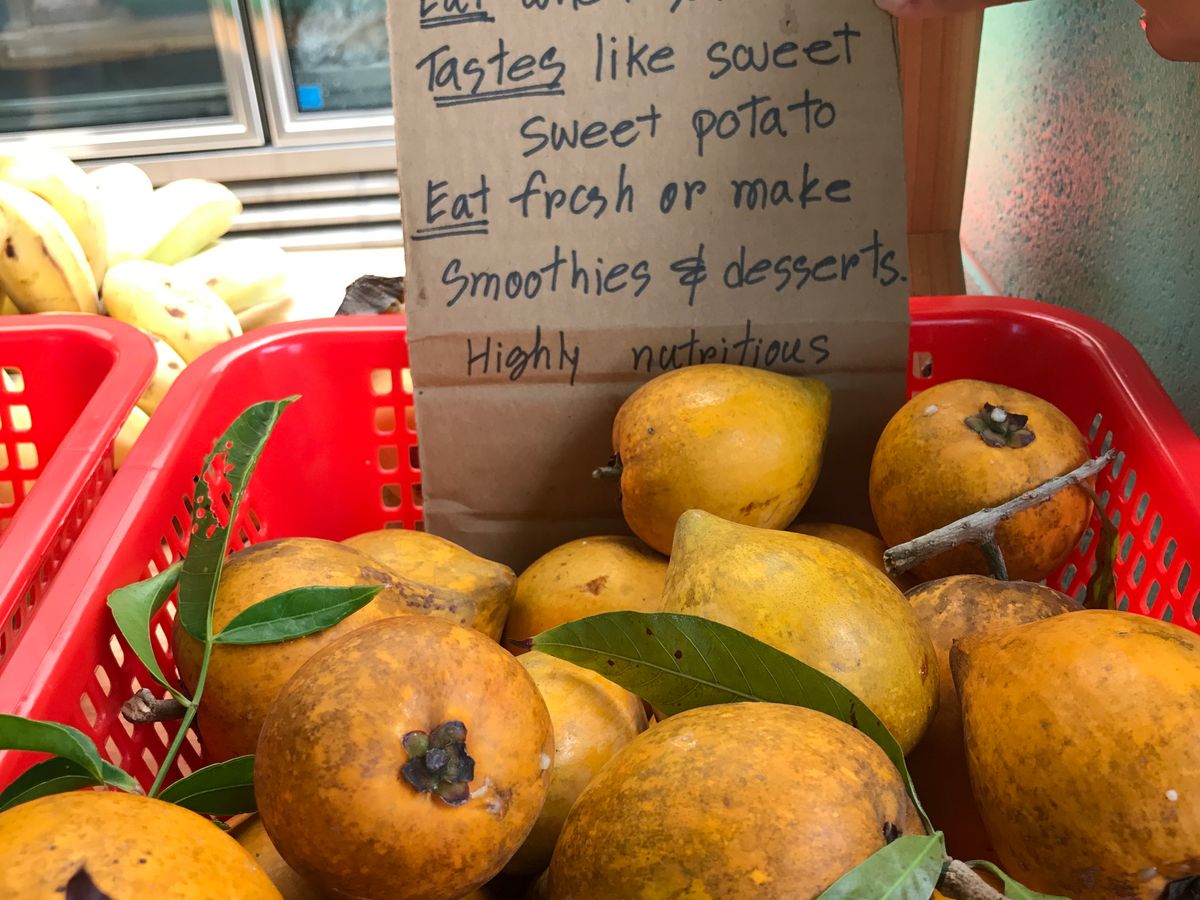 Eat when
Tastes like sweet
sweet potato
Eat fresh or make
Smoothies & desserts.
Highly nutritious